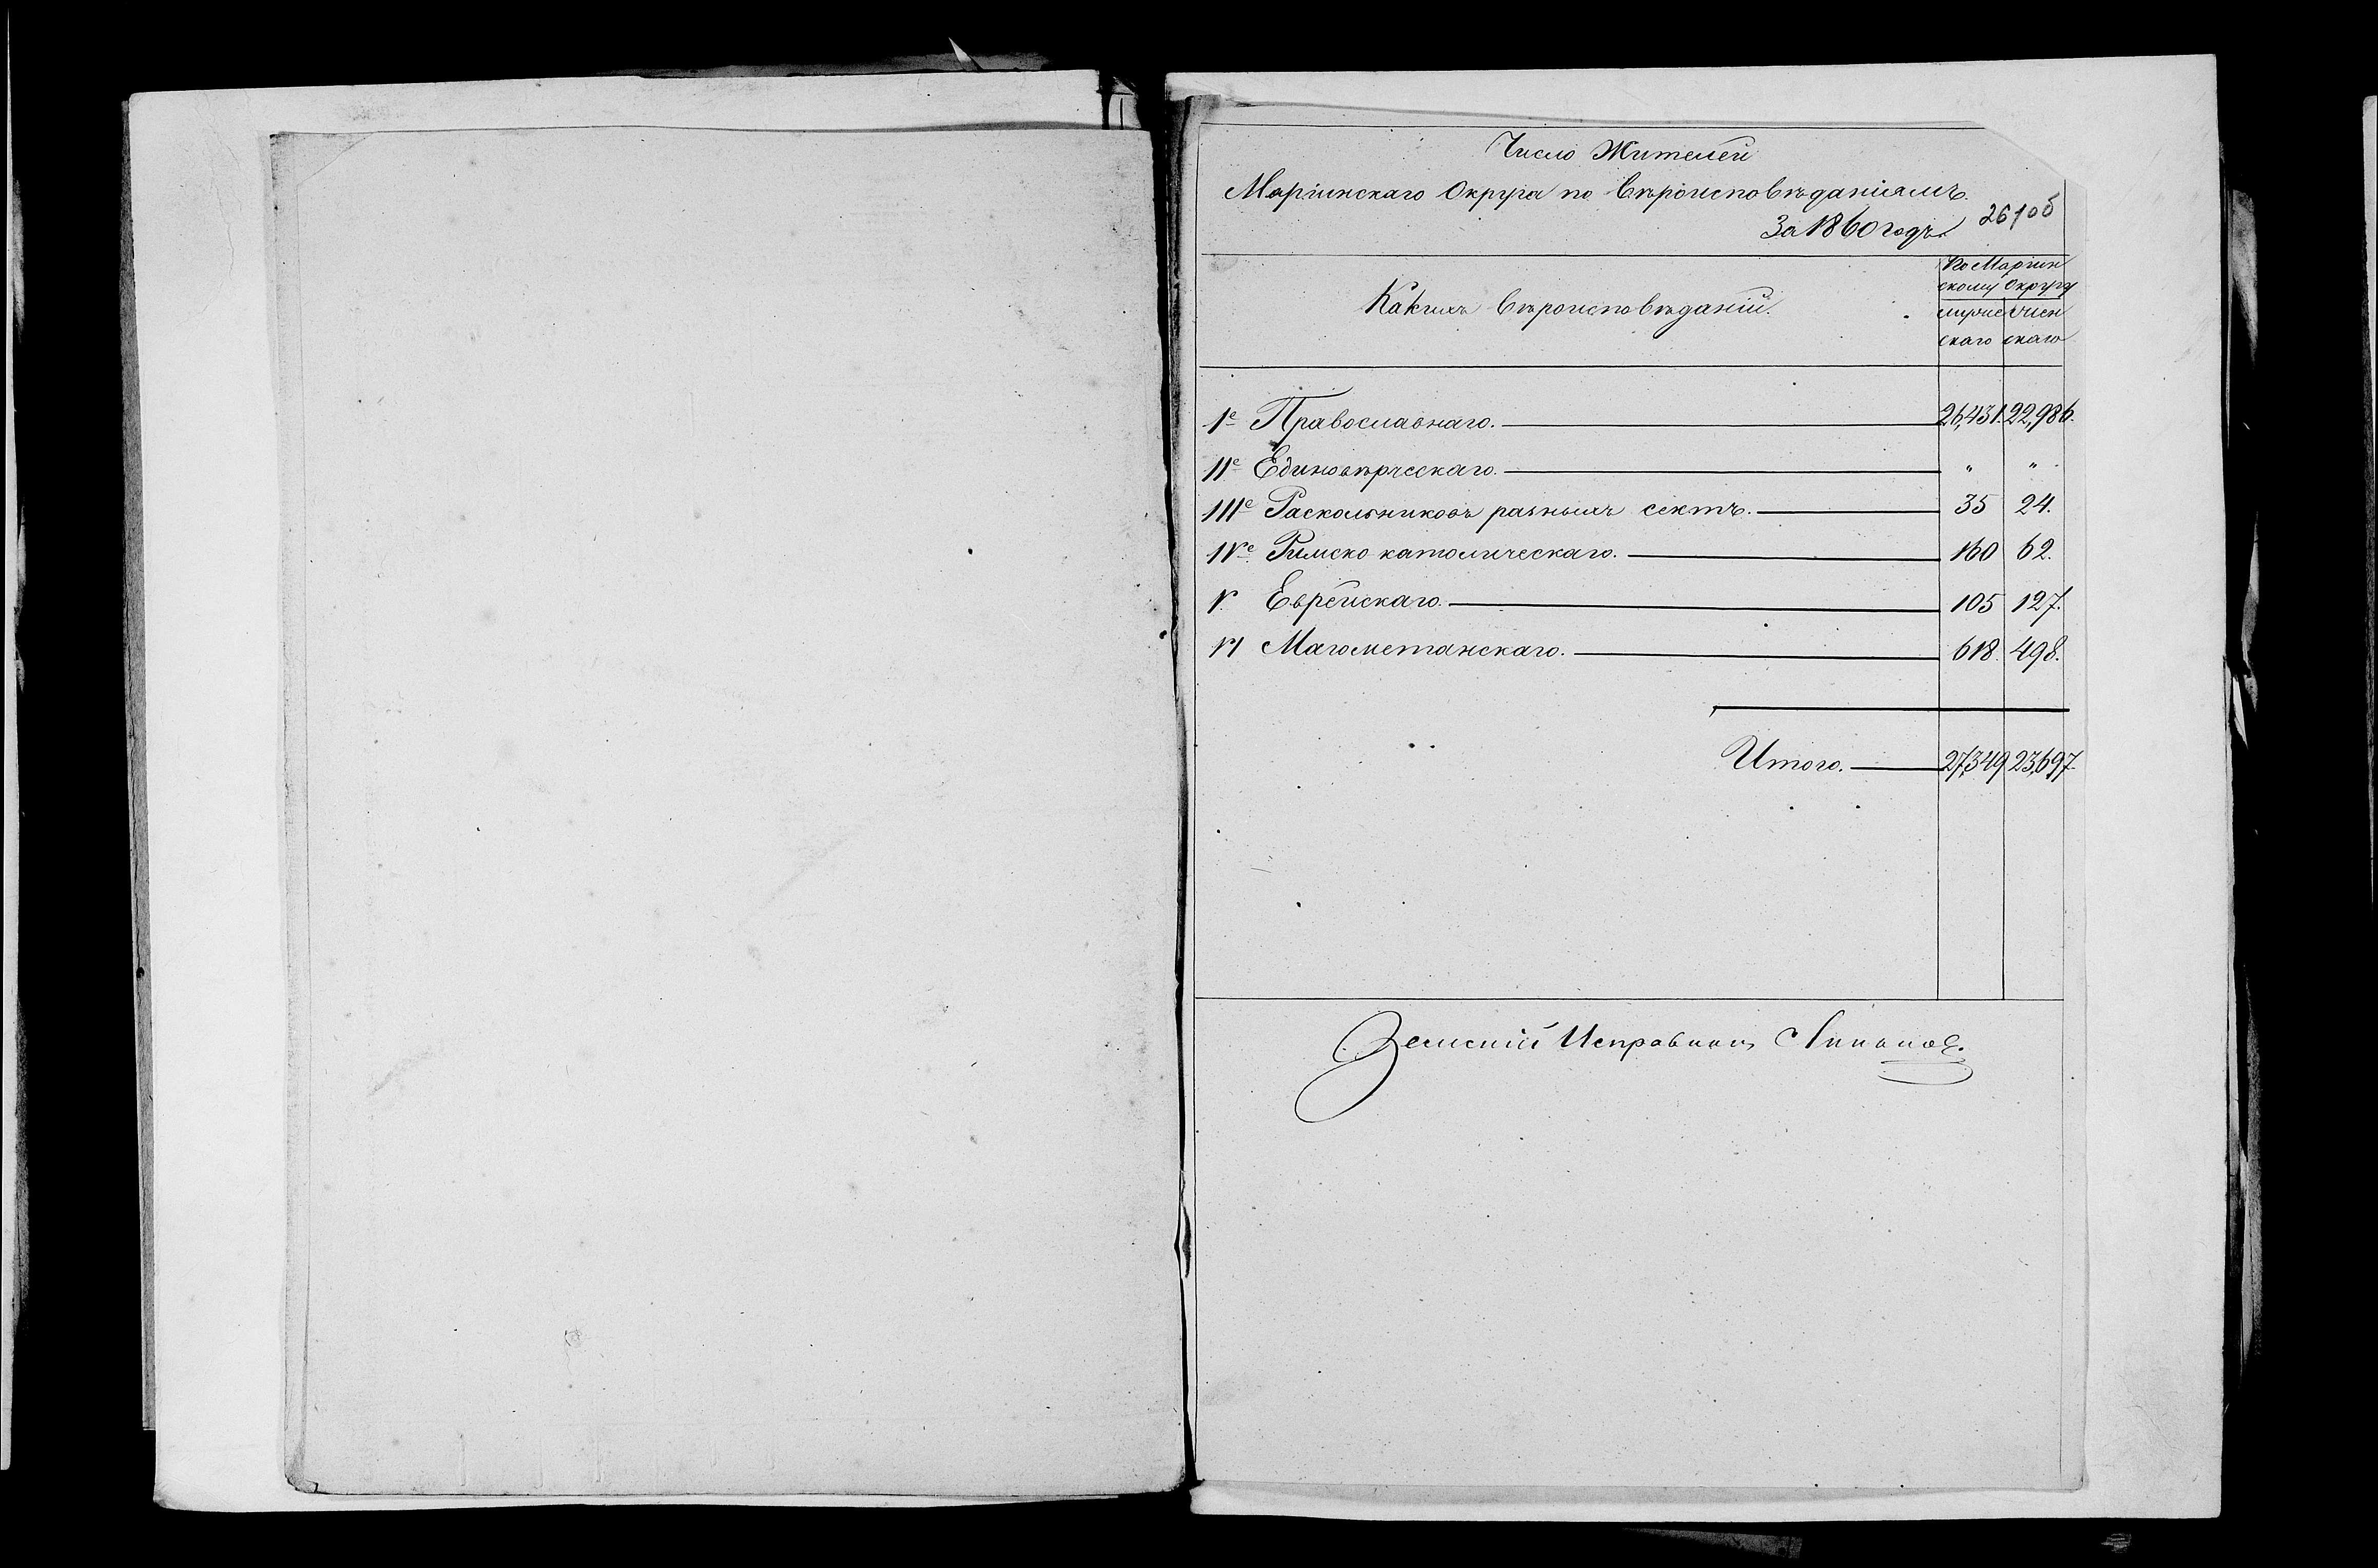 Число Жителей
Маріинскаго Округа по Вѣроисповѣданіямъ.
За 1860 годъ.
Какихъ Вѣроисповѣданій.
По Маріин
скому Округу
мужес жен
скаго скаго
Iе Православнаго. 26,431. 22,986.
IIе Единовѣрческаго. " "
IIIе Раскольниковъ разныхъ сектъ. 35 24.
IVе Римско католическаго. 160 62.
V. Еврейскаго. 105 127.
VI Магометанскаго. 618. 498.
Итого. 27,349 23,697
Земскій Исправникъ